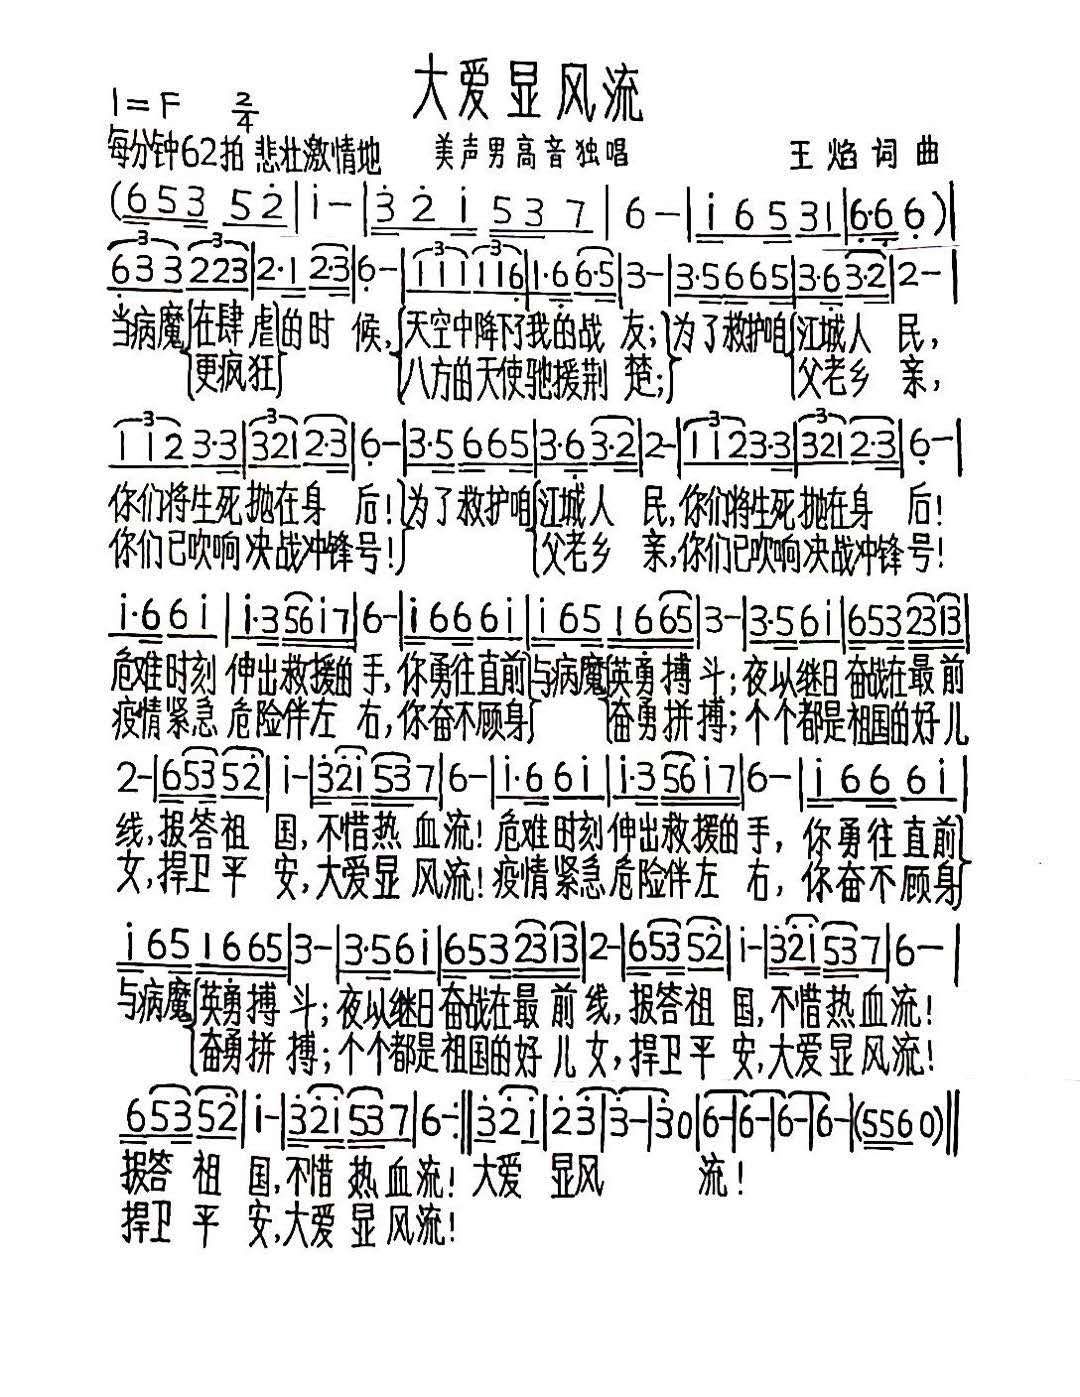 大爱显风流
1=F 2/4
每分钟62拍 悲壮激情地 美声男高音独唱 王焰词曲
(653 52̇|i-|3̇2̇i 537|6-|i65 31|6·66)|
633 223|2·1 2·3|6-|111 116|1·6 6·5|3-|3·5665|3·6 3·2|2-|
当病魔{在肆虐}的时候,{天空中降下了我的战友;}为了救护咱{江城人民,
更疯狂 八方的天使驰援荆楚; 父老乡亲,
112 3·3|321 2·3|6-|3·5 665|3·6 3·2|2-|112 3·3|321 2·3|6-|
你们将生死抛在身后!}为了救护咱{江城人民,你们将生死抛在身后!
你们已吹响决战冲锋号! 父老乡亲,你们已吹响决战冲锋号!
i·6 6i|i·3 56i7|6-|i66 6i|i65 1665|3-|3·5 6i|653 2313|
危难时刻伸出救援的手,你勇往直前}与病魔{英勇搏斗;夜以继日奋战在最前
疫情紧急危险伴左右,你奋不顾身 奋勇拼搏;个个都是祖国的好儿
2-|653 52̇|i-|3̇2̇i 537|6-|i·6 6i|i·3 56i7|6-|i66 6i|
线,报答祖国,不惜热血流!危难时刻伸出救援的手,你勇往直前}
女,捍卫平安,大爱显风流!疫情紧急危险伴左右,你奋不顾身
i65 1665|3-|3·5 6i|653 2313|2-|653 52̇|i-|3̇2̇i 537|6-|
与病魔{英勇搏斗;夜以继日奋战在最前线,报答祖国,不惜热血流!
奋勇拼搏;个个都是祖国的好儿女,捍卫平安,大爱显风流!
653 52̇|i-|3̇2̇i 537|6-:‖3̇2̇i|2̇3̇|3̇-|3̇0|6-|6-|6-|6-|(5560)‖
报答祖国,不惜热血流!大爱显风流!
捍卫平安,大爱显风流!